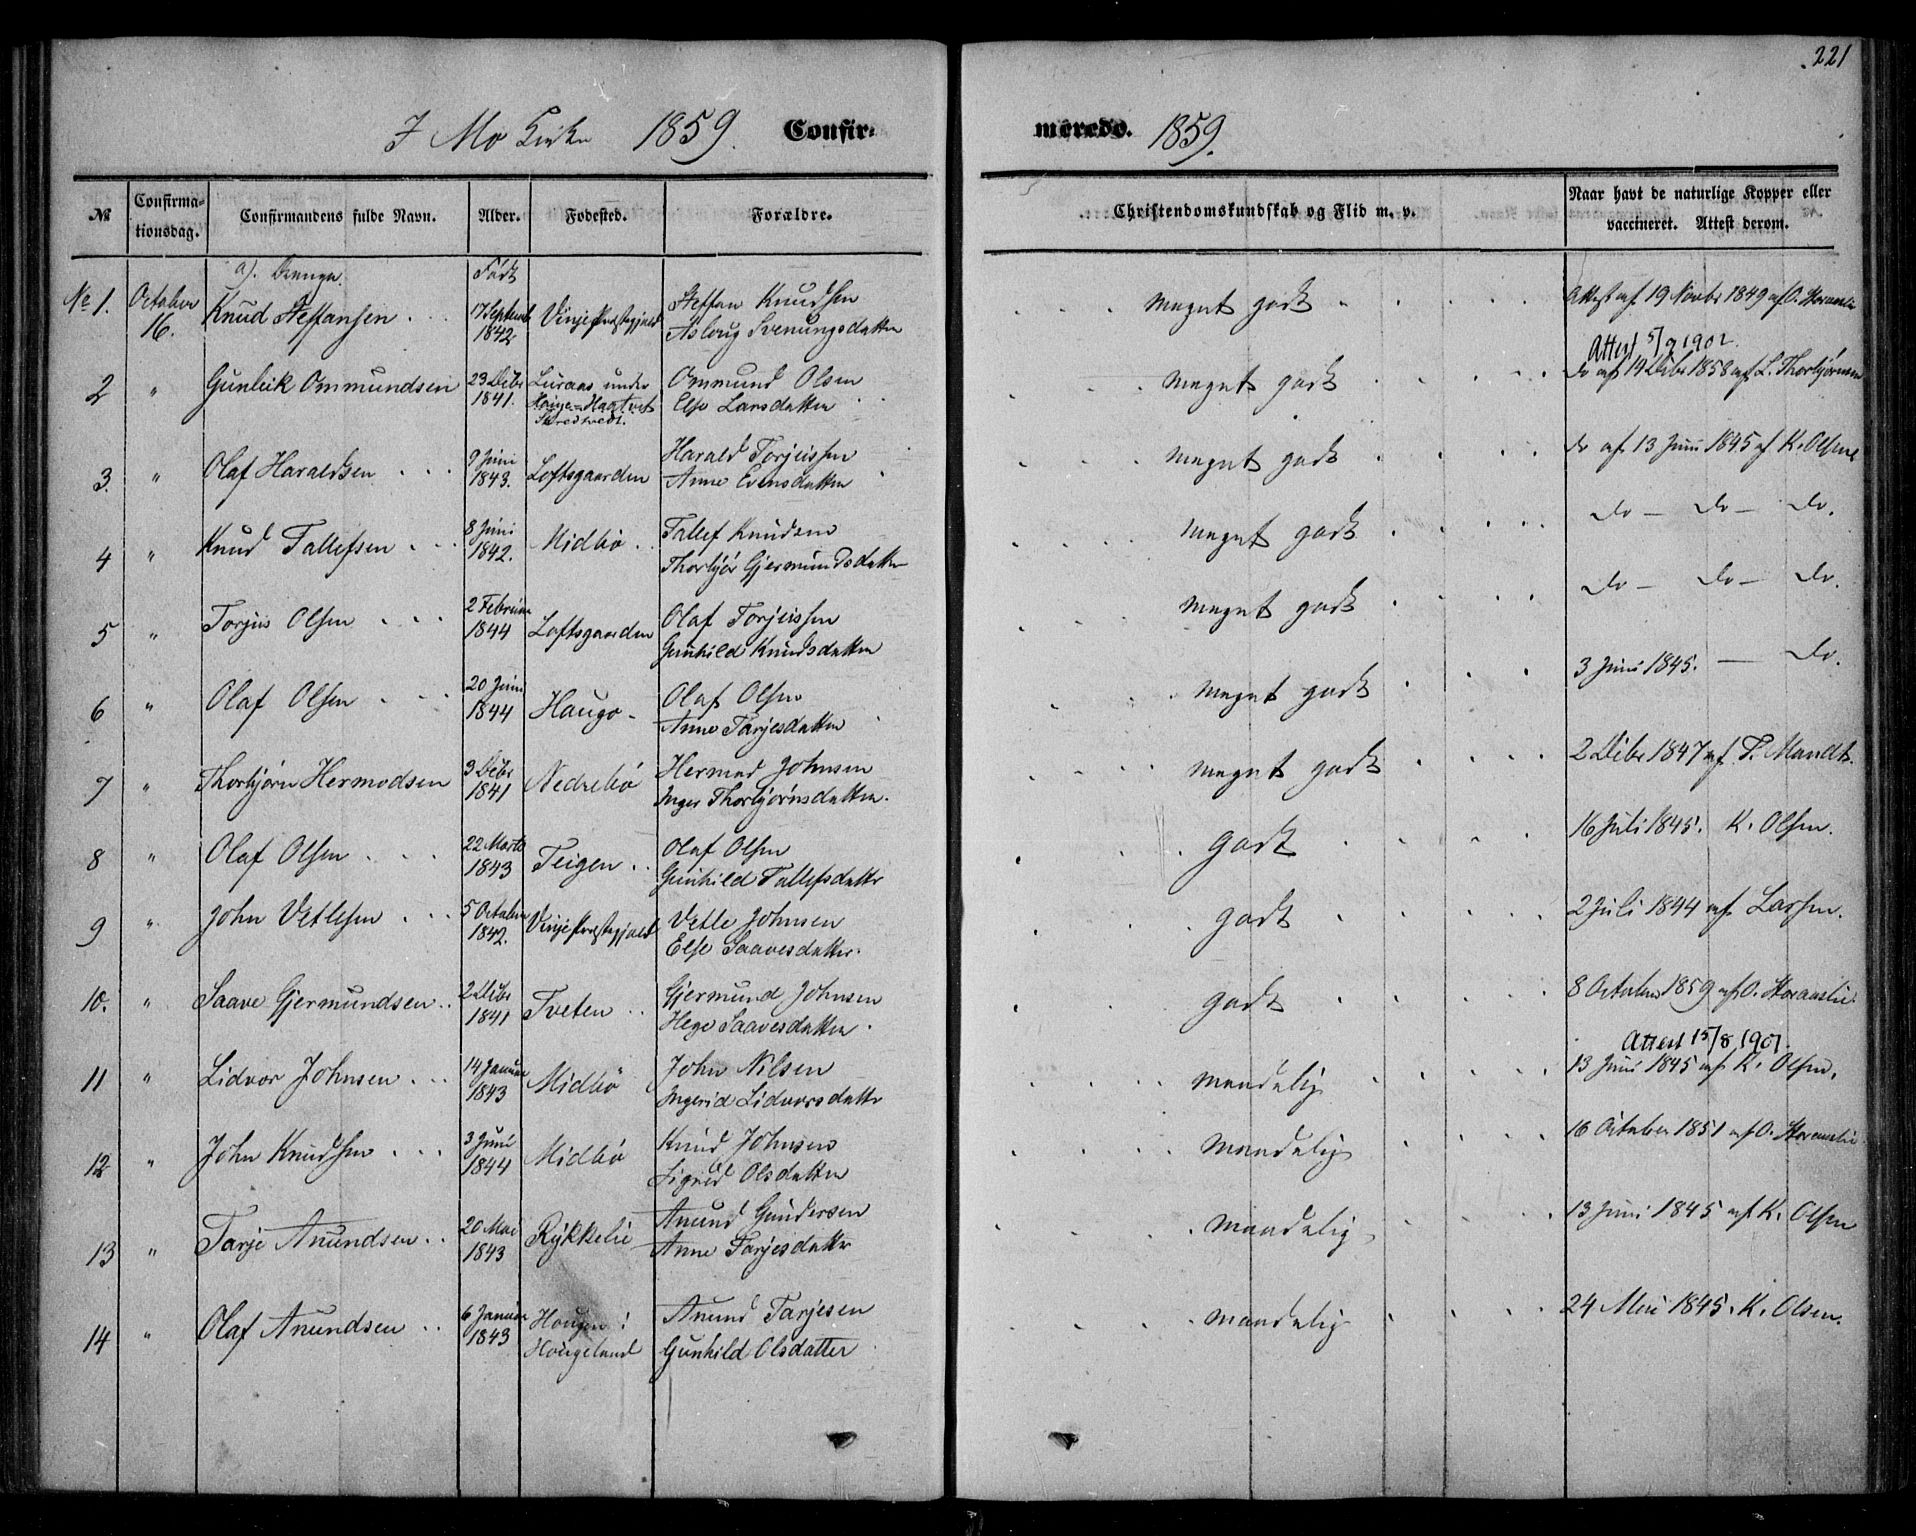 221
I Mo Kirke 1859. Confir-
merede. 1859.
№ Confirma-tionsdag. Confirmandens fulde Navn. Alder. Fødested. Forældre. Christendomskundskab og Flid m. v. Naar havt de naturlige Kopper eller vaccineret. Attest derom.
a). Drenge. Født
№ 1. October 16. Knud Steffansen 17 Septemb 1842. Vinje Præstegjæld Steffan Knudsen Asloug Svenungsdatter meget godt Attest af 19 Novbr 1849 af O.
Attest 5/9 1902.
2 " Gunleik Ommundsen 23 Debr 1841. Luraas under Ommund Olsen Else Larsdatter meget godt do af 14 Debr 1858 af L. Thorbjørnsen
3. " Olaf Haraldsen 9 Juni 1843. Loftsgaarden Harald Torjussen Anne Evensdatter meget godt do af 13 Juni 1845 af K. Olsen
4 " Knud Tallefsen 8 Juni 1842. Midbø Tallef Knudsen Thorbjør Gjermundsdatter meget godt do - do - do.
5 " Torjus Olsen 2 Februar 1844 Loftsgaarden Olaf Torjussen Gunhild Knudsdatter meget godt do - do - do.
6 " Olaf Olsen 20 Juni 1844 Haugo Olaf Olsen Anne Tarjesdatter meget godt 3 Juni 1845. - do.
7 " Thorbjørn Hermodsen 3 Debr 1841 Nedrebø Hermod Johnsen Inger Thorbjørnsdatter. meget godt 2 Debr 1847 af T. Mandt.
8 " Olaf Olsen 22 Marts 1843 Teigen Olaf Olsen Gunhild Tallefsdattr godt 16 Juli 1845. K. Olsen.
9 " John Vetlesen 5 October 1842. Vinje Præstegjæld Vetle Johnsen Else Saavesdatter. godt 2 Juli 1844 af Larsen.
10. " Saave Gjermundsen 2 Debr 1841 Tveten Gjermund Johnsen Hege Saavesdatter. godt 8 October 1859 af O.
Attest 15/8 1901.
11 " Lidvor Johnsen 14 Januar 1843 Midbø John Nilsen Ingerid Lidvorsdattr maadelig 13 Juni 1845 af K. Olsen.
12 " John Knudsen 3 Juni 1844 Midbø Knud Johnsen Sigrid Olsdatter maadelig 16 October 1851 af O.
13 " Tarje Anundsen 20 Mai 1843 Rykkelie Anund Gundersen Anne Tarjesdattr maadelig 13 Juni 1845 af K. Olsen
14 " Olaf Anundsen 6 Januar 1843 Hougen i Hougelund Anund Tarjesen Gunhild Olsdatter maadelig 24 Mai 1845. K. Olsen.